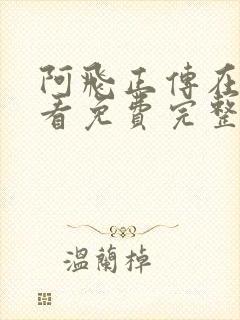 阿飛正傳在
看免費完整
溫蘭掉